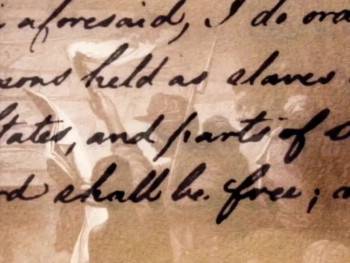 aforesaid, I do ord
sons held as slaves
tates, and parts of
rd shall be free; a